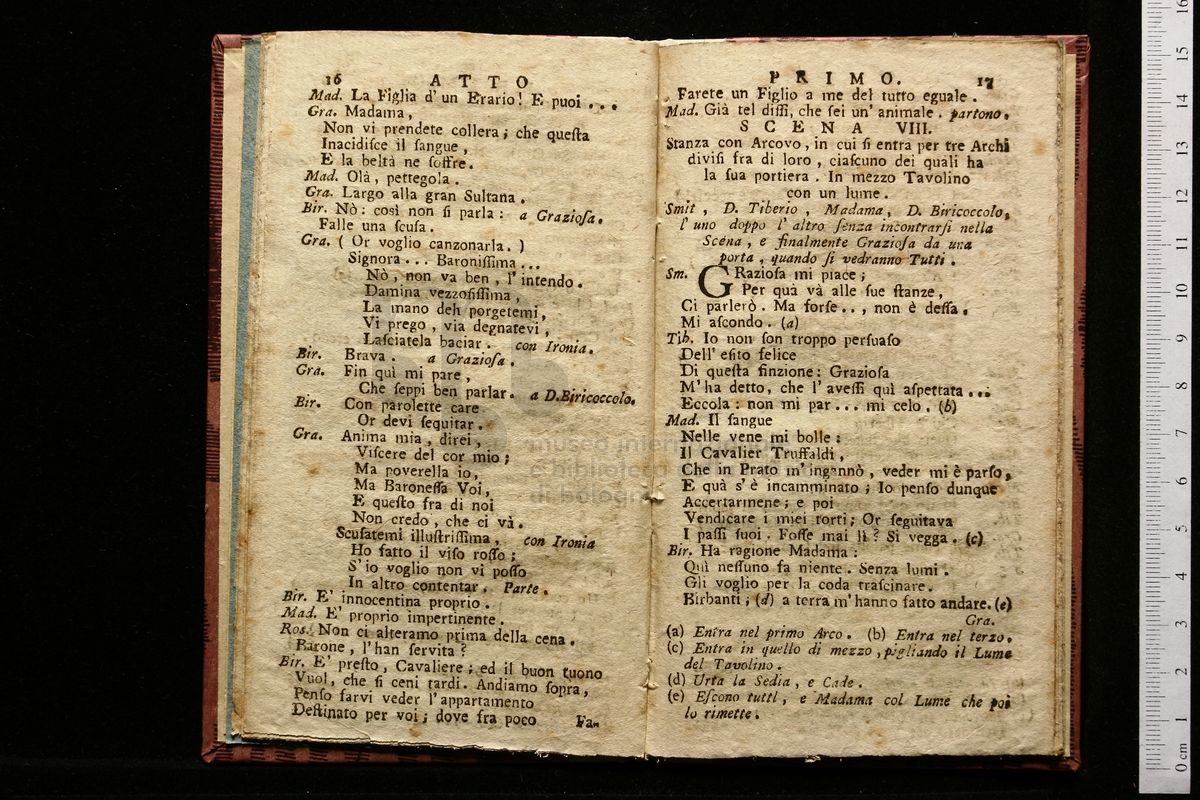 16 ATTO
Mad. La Figlia d' un Erario! E puoi ...
Gra. Madama,
Non vi prendete collera; che queſta
Inacidiſce il ſangue,
E la beltà ne ſoffre.
Mad. Olà, pettegola.
Gra. Largo alla gran Sultana.
Bir. Nò: così non ſi parla: a Grazioſa.
Falle una ſcuſa.
Gra. ( Or voglio canzonarla. )
Signora ... Baroniſſima ...
Nò, non va ben, l' intendo.
Damina vezzoſiſſima,
La mano deh porgetemi,
Vi prego, via degnatevi,
Laſciatela baciar. con Ironia.
Bir. Brava. a Grazioſa.
Gra. Fin quì mi pare,
Che ſeppi ben parlar. a D.Biricoccolo.
Bir. Con parolette care
Or devi ſeguitar.
Gra. Anima mia, direi,
Viſcere del cor mio;
Ma poverella io,
Ma Baroneſſa Voi,
E queſto fra di noi
Non credo, che ci và.
Scuſatemi illuſtriſſima, con Ironia
Ho fatto il viſo roſſo;
S' io voglio non vi poſſo
In altro contentar. Parte.
Bir. E' innocentina proprio.
Mad. E' proprio impertinente.
Ros. Non ci alteramo prima della cena.
Barone, l' han ſervita?
Bir. E' preſto, Cavaliere; ed il buon tuono
Vuol, che ſi ceni tardi. Andiamo ſopra,
Penſo farvi veder l' appartamento
Deſtinato per voi; dove fra poco
Fa-
PRIMO. 17
Farete un Figlio a me del tutto eguale.
Mad. Già tel diſſi, che ſei un' animale. partono.
SCENA VIII.
Stanza con Arcovo, in cui ſi entra per tre Archi
diviſi fra di loro, ciaſcuno dei quali ha
la ſua portiera. In mezzo Tavolino
con un lume.
Smit, D. Tiberio, Madama, D. Biricoccolo,
l' uno doppo l' altro ſenza incontrarſi nella
Scena, e finalmente Grazioſa da una
porta, quando ſi vedranno Tutti.
Sm. GRazioſa mi piace;
Per quà và alle ſue ſtanze,
Ci parlerò. Ma forſe.., non è deſſa.
Mi aſcondo. (a)
Tib. Io non ſon troppo perſuaſo
Dell' eſito felice
Di queſta finzione: Grazioſa
M' ha detto, che l' aveſſi quì aſpettata ...
Eccola: non mi par... mi celo. (b)
Mad. Il ſangue
Nelle vene mi bolle:
Il Cavalier Truffaldi,
Che in Prato m' ingannò, veder mi è parſo,
E quà s' è incamminato; Io penſo dunque
Accertarmene; e poi
Vendicare i miei torti; Or ſeguitava
I paſſi ſuoi. Foſſe mai lì? Si vegga. (c)
Bir. Ha ragione Madama:
Quì neſſuno fa niente. Senza lumi.
Gli voglio per la coda traſcinare.
Birbanti; (d) a terra m' hanno fatto andare. (e)
Gra.
(a) Entra nel primo Arco. (b) Entra nel terzo.
(c) Entra in quello di mezzo, pigliando il Lume
del Tavolino.
(d) Urta la Sedia, e Cade.
(e) Eſcono tutti, e Madama col Lume che poi
lo rimette.